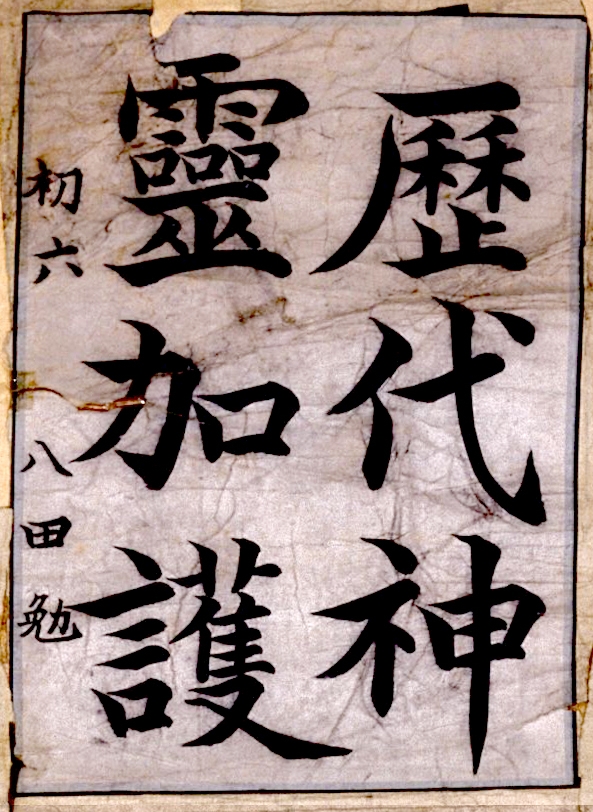 歷代神
靈加護
初六 八田勉